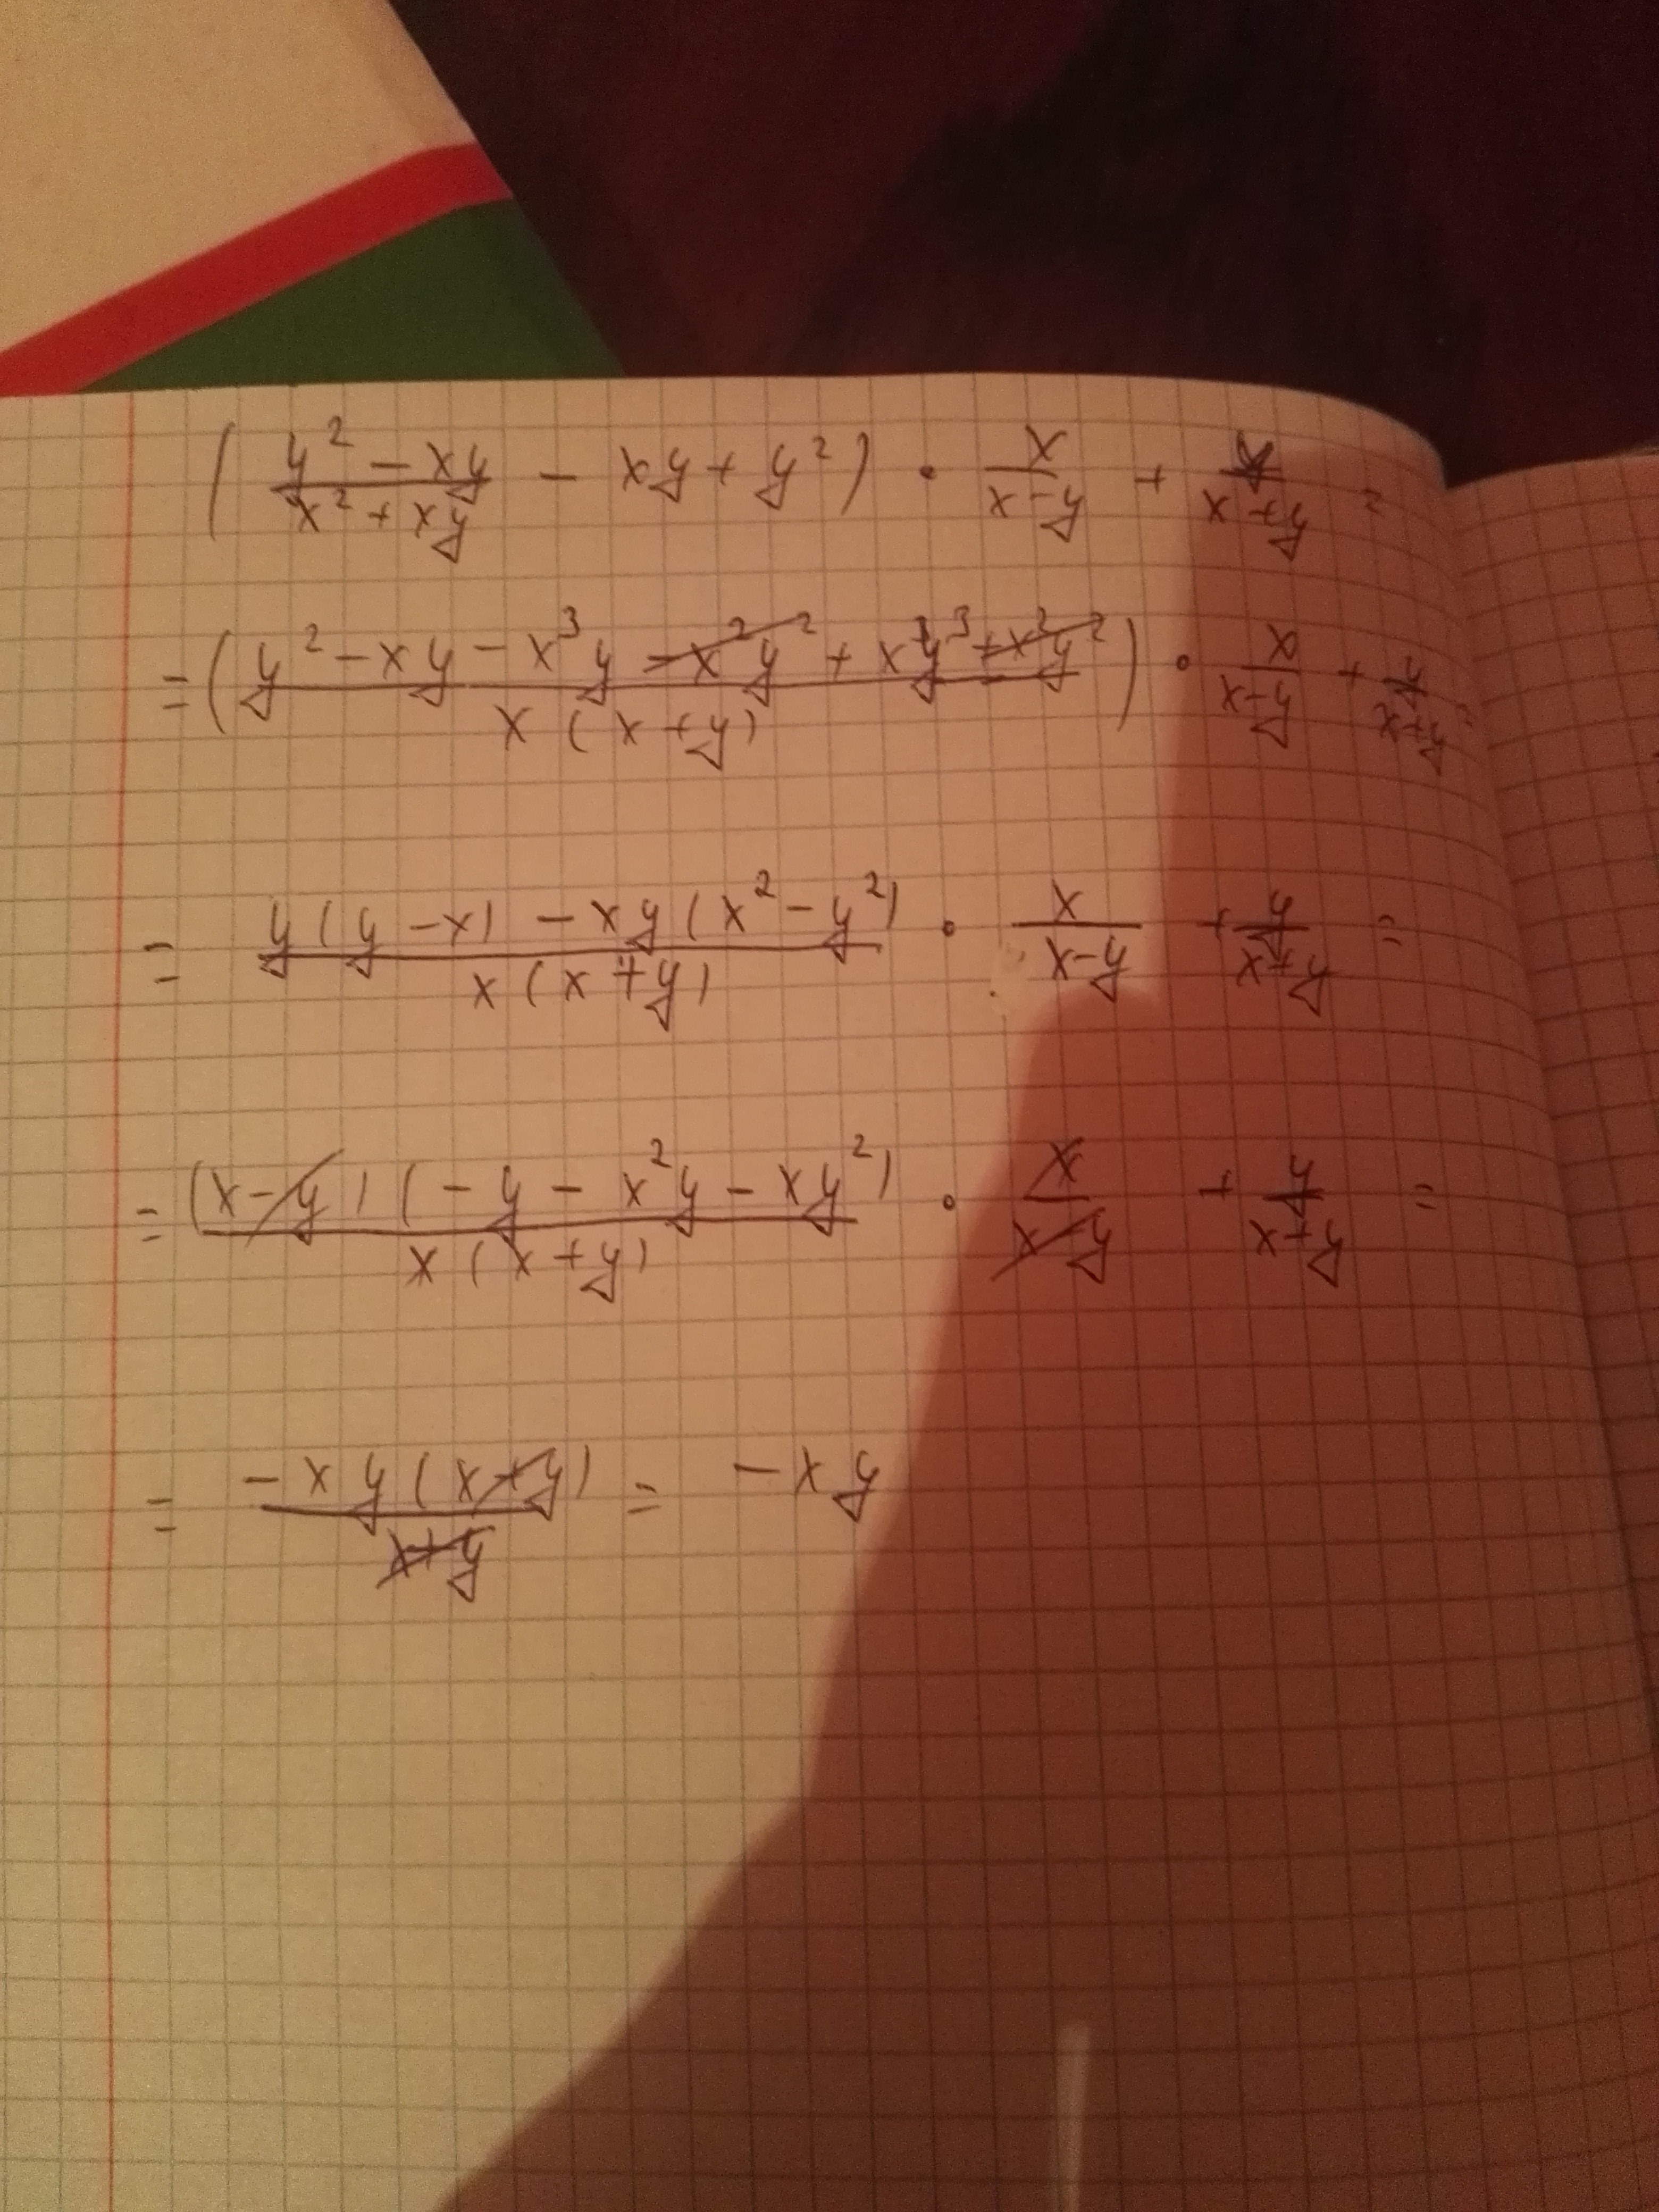 ( (y² - xy)/(x² + xy) - xy + y² ) · x/(x-y) + y/(x+y) =
= ( (y² - xy - x³y - x²y² + xy³ + x²y²)/(x(x+y)) ) · x/(x-y) + y/(x+y) =
= (y(y-x) - xy(x² - y²))/(x(x+y)) · x/(x-y) + y/(x+y) =
= ((x-y)(-y - x²y - xy²))/(x(x+y)) · x/(x-y) + y/(x+y) =
= (-xy(x+y))/(x+y) = -xy